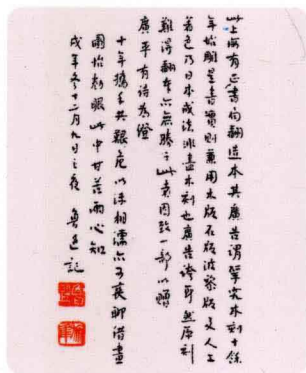 此上海有正書局翻造本其廣告謂研究木刻十餘
年始雕是書實則兼用木版石版波黎版及人工
著色乃日本成法非盡木刻也廣告誇耳然原刻
難得翻本亦無勝于此者因致一部以贈
廣平有詩為證
十年攜手共艱危以沫相濡亦可哀聊借畫
圖怡倦眼此中甘苦兩心知
戌年冬十二月九日之夜 魯迅記